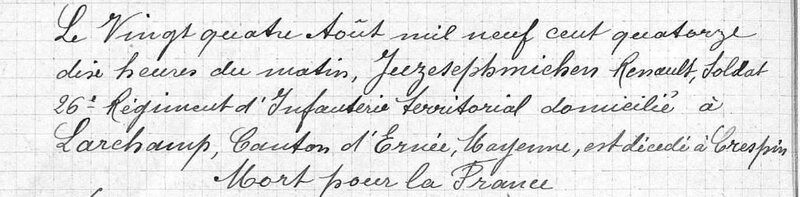 Le Vingt quatre Août mil neuf cent quatorze
dix heures du matin, Renault, Soldat
26e Régiment d'Infanterie territorial domicilié à
Larchamp, Canton d'Ernée, Mayenne, est décédé à Crespin
Mort pour la France